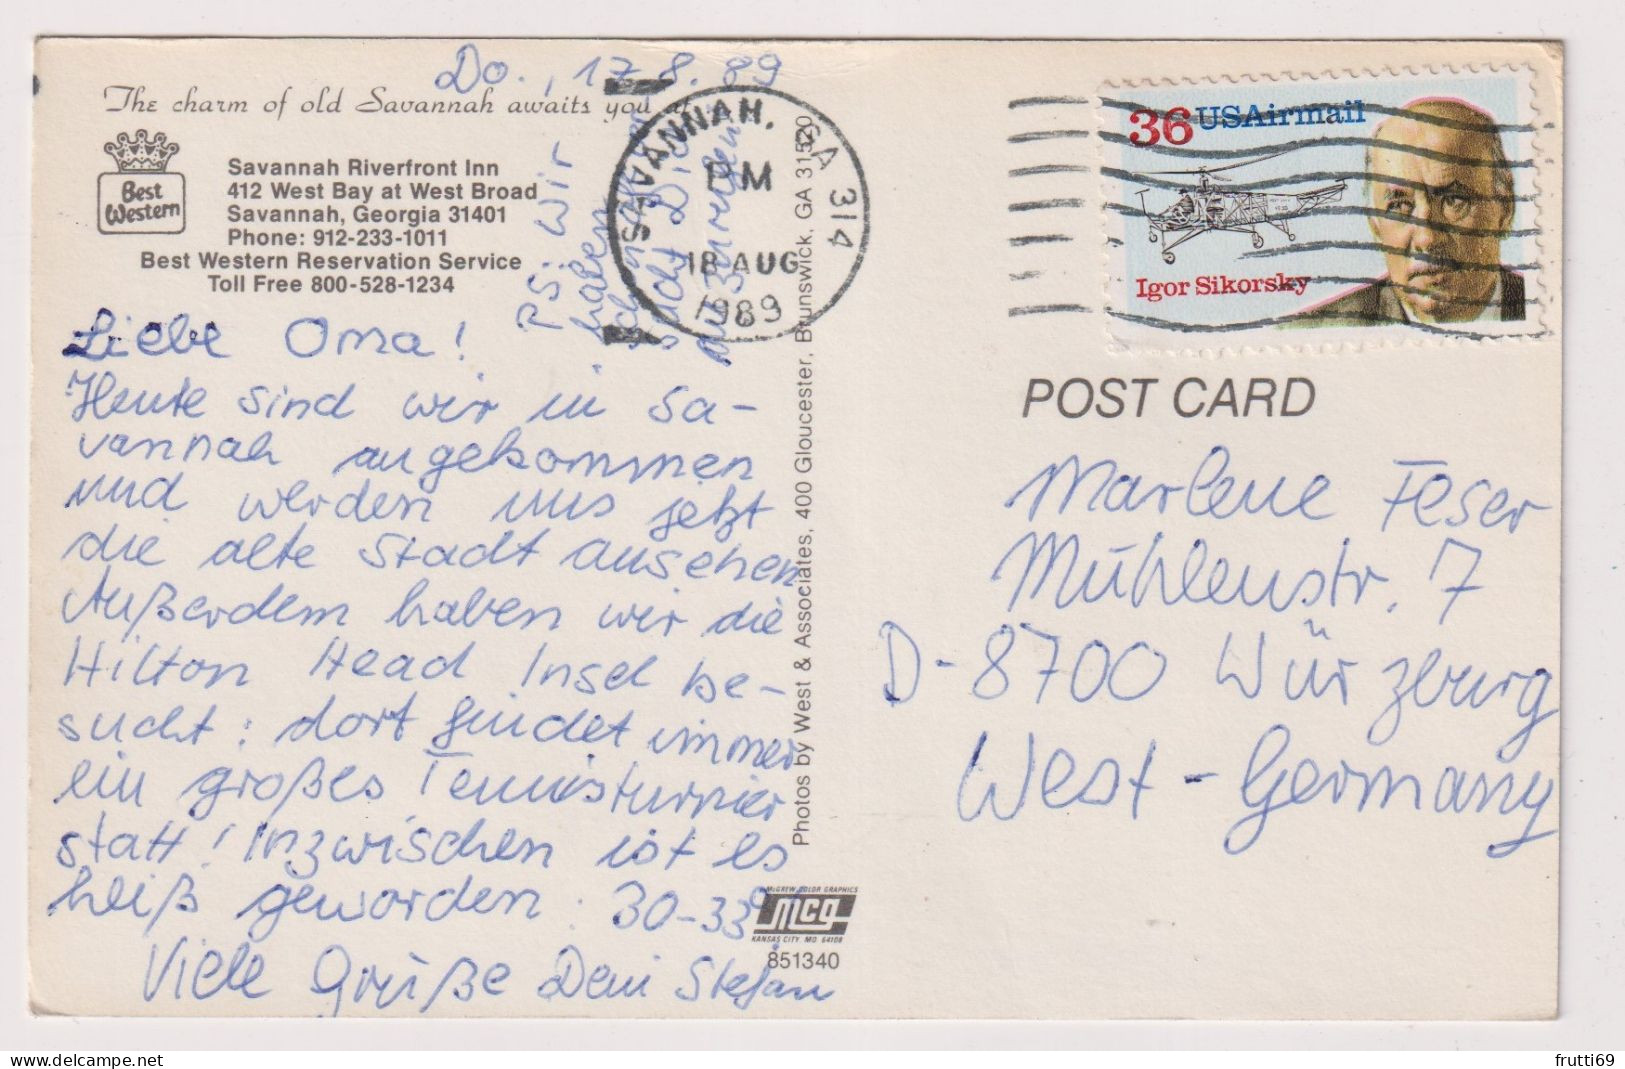 Do., 17.8.89
The charm of old Savannah awaits you at
Best
Western
Savannah Riverfront Inn
412 West Bay at West Broad
Savannah, Georgia 31401
Phone: 912-233-1011
Best Western Reservation Service
Toll Free 800-528-1234
PS: Wir
haben
Dich
anzurufen!
SAVANNAH, GA 314
PM
18 AUG
1989
Liebe Oma!
Heute sind wir in Sa-
vannah angekommen
und werden uns jetzt
die alte Stadt ansehen
Außerdem haben wir die
Hilton Head Insel be-
sucht: dort findet immer
ein großes Tennisturnier
statt! Inzwischen ist es
heiß geworden: 30-33°
Viele Grüße Dein Stefan
Photos by West & Associates, 400 Gloucester, Brunswick, GA 31520
McGREW COLOR GRAPHICS
mcg
KANSAS CITY, MO 64108
851340
36 USAirmail
Igor Sikorsky
POST CARD
Marlene Feser
Mühlenstr. 7
D-8700 Würzburg
West-Germany
frutti69